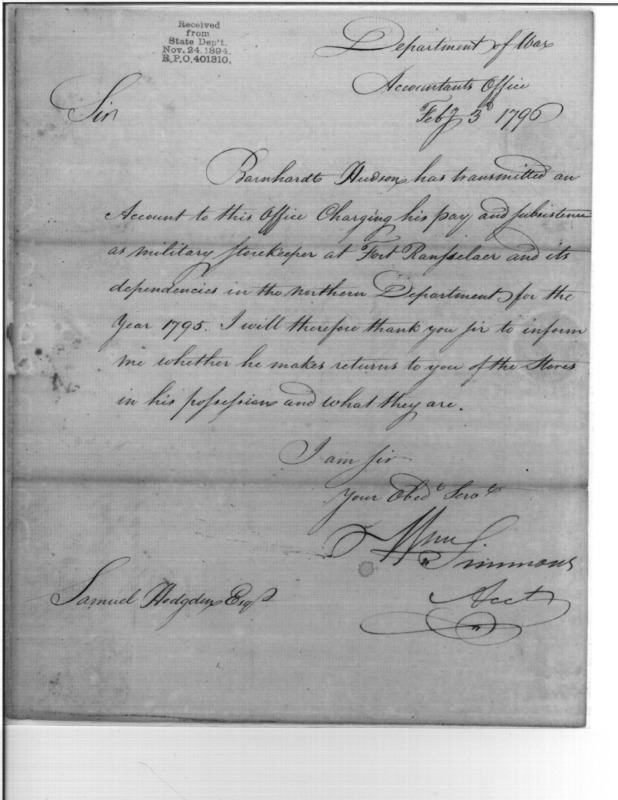 Received
from
State Dep't.
Nov. 24. 1894.
R.P.O. 401310.
Department of War
Accountants Office
Feby 3d 1796
Sir
Barnhardt Hudson has transmitted an
Account to this Office Charging his pay and subsistence
as military storekeeper at Fort Ransselaer and its
dependencies in the northern Department for the
Year 1795. I will therefore thank you sir to inform
me whether he makes returns to you of the Stores
in his possession and what they are.
I am sir
Your Obedt Servt
Wm Simmons
Acct
Samuel Hodgden Esqr